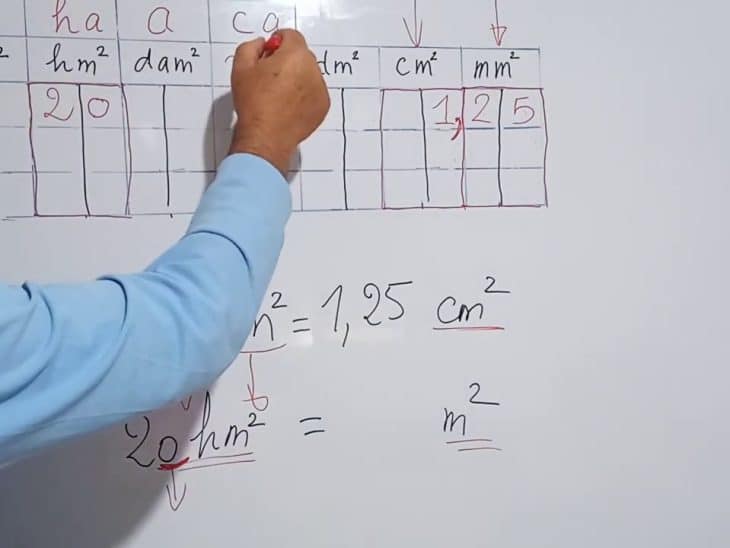 ha a ca
hm² dam² dm² cm² mm²
20 1,25
m² = 1,25 cm²
20 hm² = m²